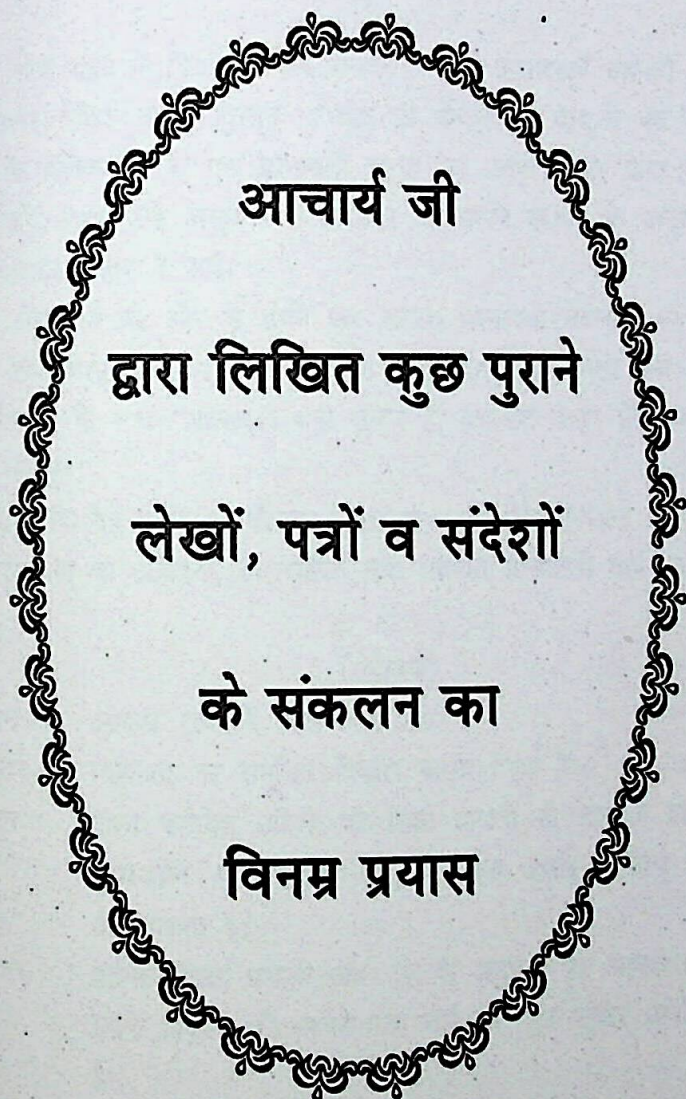 आचार्य जी
द्वारा लिखित कुछ पुराने
लेखों, पत्रों व संदेशों
के संकलन का
विनम्र प्रयास